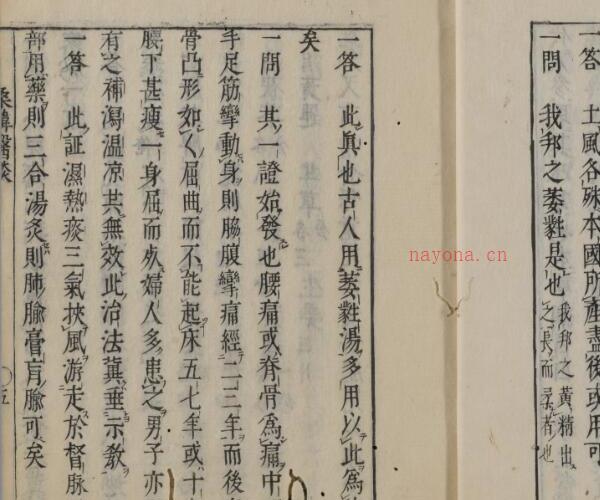 一答 土風各殊本國所產盡後或用可
一問 我邦之萎蕤是也 我邦之黃精出
之長而柔者也
一答 此眞也古人用萎蕤湯多用以此爲
矣
一問 其一證始發也腰痛或脊骨爲痛中
手足筋攣動身則脇腹攣痛經二三年而後
骨凸形如く屈曲而不能起床五七年或十
腰下甚瘦一身屈而死婦人多患之男子亦
有之補瀉溫凉共無效此治法冀垂示敎
一答 此証濕熱痰三氣挾風游走於督脉
部用藥則三合湯灸則肺腧膏肓腧可矣
桑韓醫談 〇五
nayona.cn